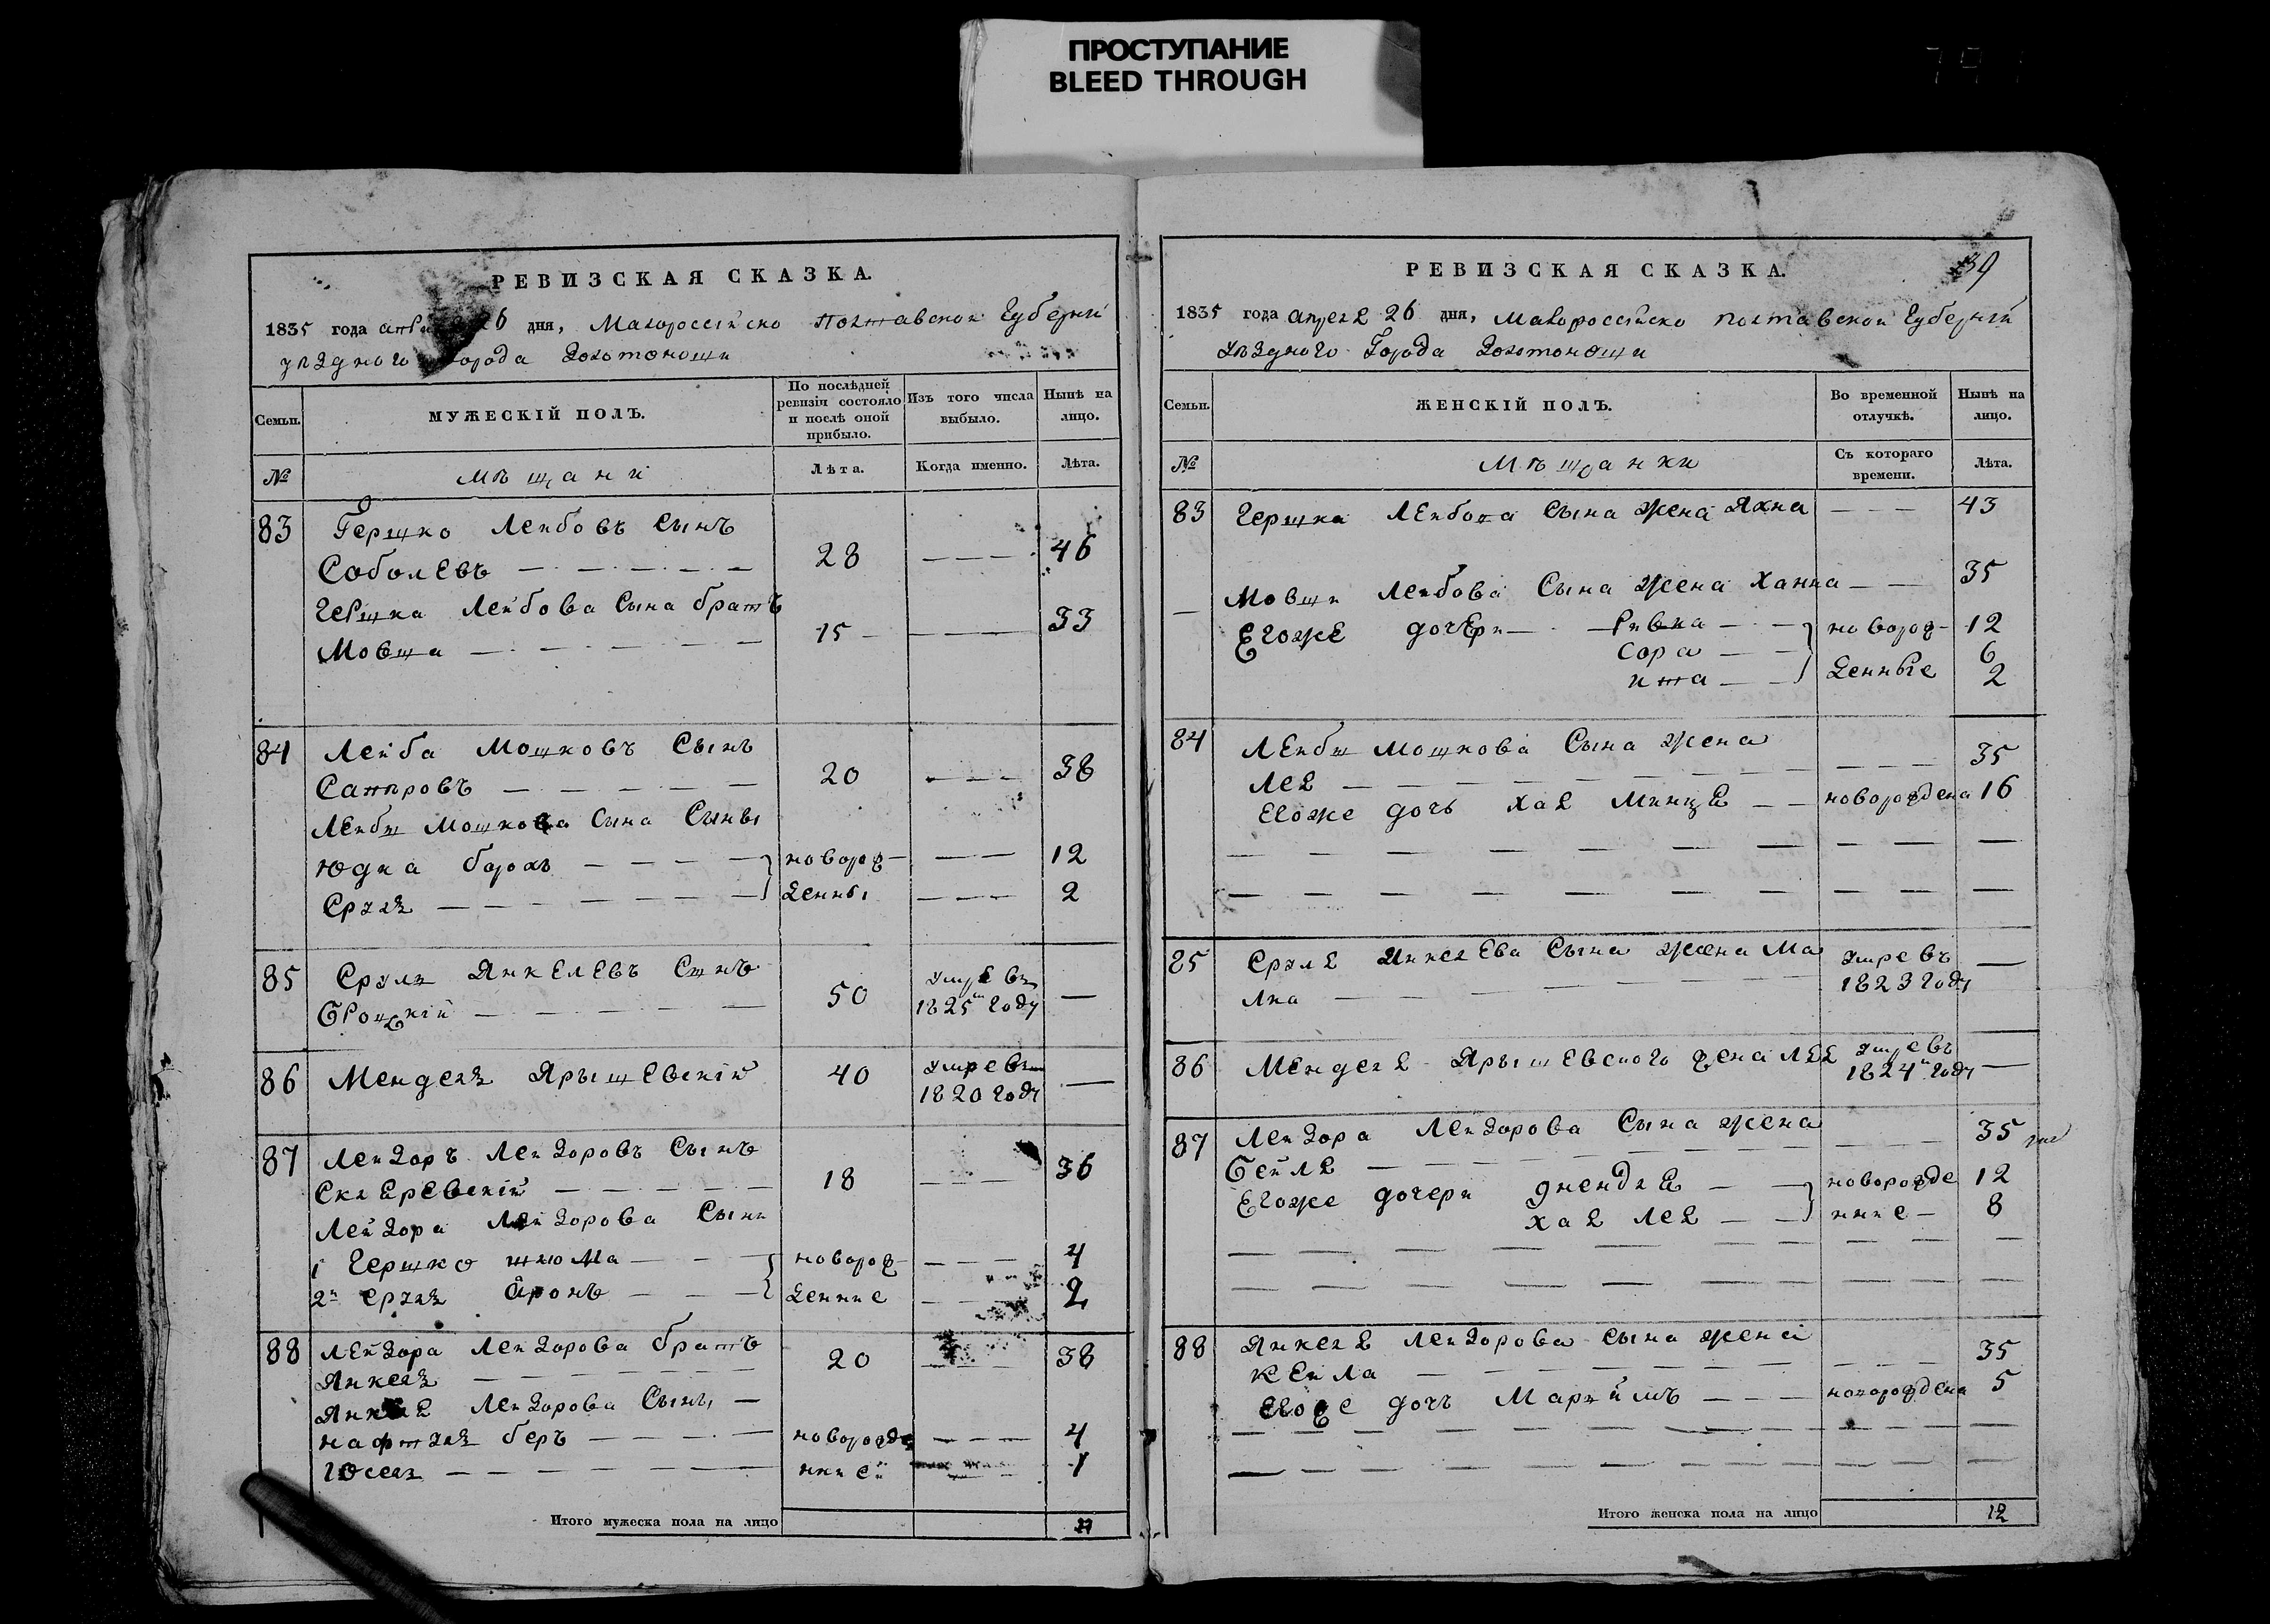 ПРОСТУПАНИЕ
BLEED THROUGH
РЕВИЗСКАЯ СКАЗКА.
1835 года 26 дня, Малороссійско Полтавской Губерніи
уѣзднаго города Золотоноши
Семьи.
МУЖЕСКІЙ ПОЛЪ.
По послѣдней ревизіи состояло и послѣ оной прибыло.
Изъ того числа выбыло.
Нынѣ на лицо.
№
Мѣщани
Лѣта.
Когда именно.
Лѣта.
83 Гершко Лейбовъ Сынъ
Соболевъ 28 46
Гершка Лейбова Сына братъ
Мовша 15 33
84 Лейба Мошковъ Сынъ
Сапировъ 20 38
Лейбы Мошкова Сына Сыны
Юдка борохъ новорож 12
Сруль денны 2
85 Сруль Янкелевъ Сынъ
Броцкій 50 умре въ 1825 году
86 Мендель Ярышевскій 40 умре въ 1820 году
87 Лейзоръ Лейзоровъ Сынъ
Скляревскій 18 36
Лейзора Лейзорова Сыни
1 Гершко шлюма новорож 4
2й Сруль Аронъ денние 2
88 Лейзора Лейзорова братъ
Янкель 20 38
Янкеля Лейзорова Сыны
нафтуль беръ новорожде 4
Юсель 1
Итого мужеска пола на лицо
РЕВИЗСКАЯ СКАЗКА.
39
1835 года апреля 26 дня, Малороссійско полтавской Губерніи
уѣзднаго Города Золотоноши
Семьи.
ЖЕНСКІЙ ПОЛЪ.
Во временной отлучкѣ.
Нынѣ на лицо.
№
Мѣщанки
Съ котораго времени.
Лѣта.
83 Гершка Лейбова Сына жена Яхна 43
Мовши Лейбова Сына жена Ханна 35
Егоже дочери Ривка новорож 12
Сора 6
ита денные 2
84 Лейбы мошкова Сына жена
Лея 35
Егоже дочь хая Минця новорождена 16
85 Сруля Янкелева Сына жена Ма
лка умре въ 1823 году
86 Менделя Ярышевского жена лея умре въ 1824 году
87 Лейзора Лейзорова Сына жена
Бейля 35
Егоже дочери гнендля новорожде 12
хая лея нние 8
88 Янкеля Лейзорова сына жена
Кейла 35
Егоже дочь Марьимъ новорождена 5
Итого женска пола на лицо 12